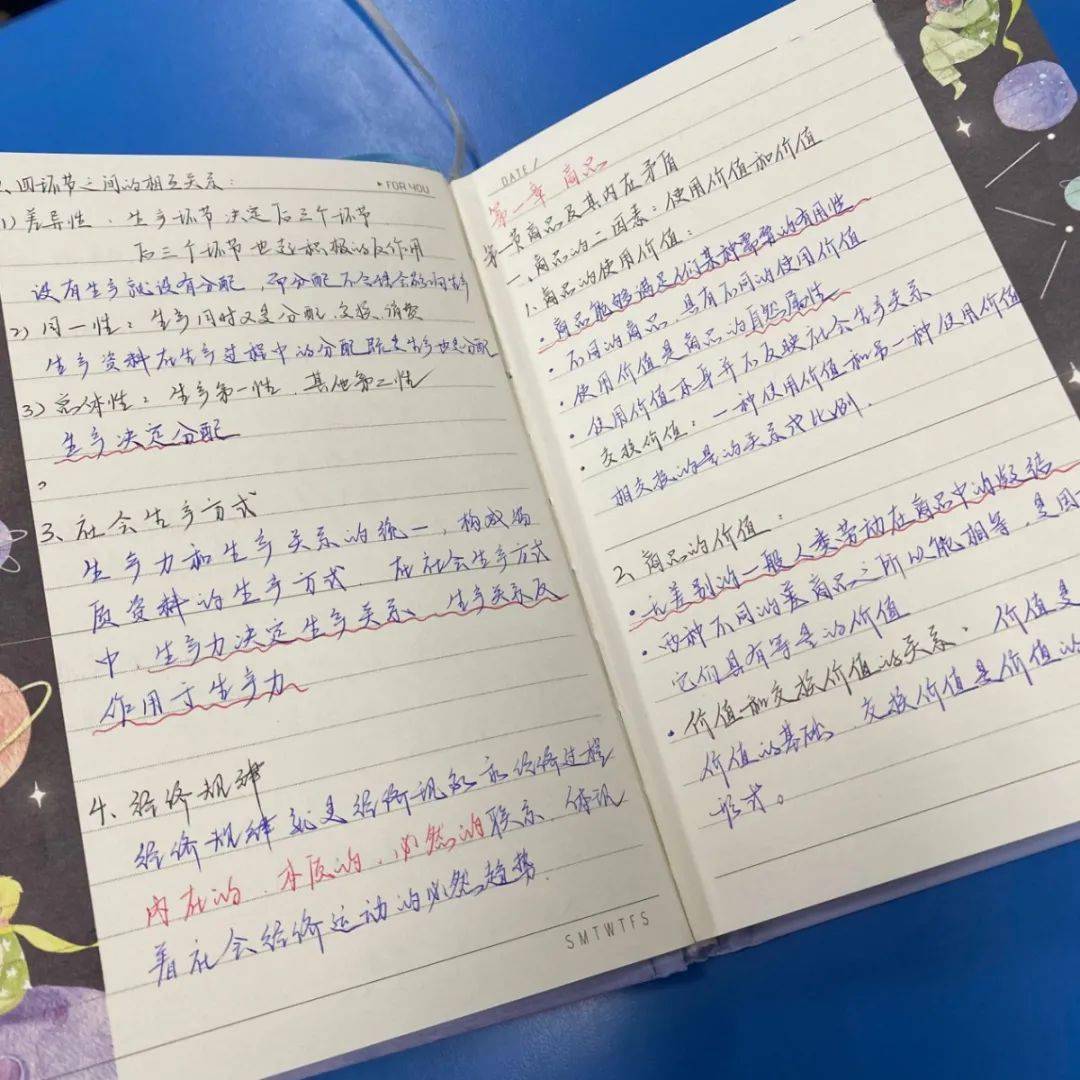 、四环节之间的相互关系：
FOR YOU
1）差异性、生产环节决定后三个环节
后三个环节也起积极的反作用
没有生产就没有分配，而分配不合理会影响生产
2）同一性：生产同时又是分配、交换、消费
生产资料在生产过程中的分配既是生产也是分配
3）总体性：生产第一性、其他第二性
生产决定分配
3、社会生产方式
生产力和生产关系的统一，构成物
质资料的生产方式 在社会生产方式
中、生产力决定生产关系、生产关系反
作用于生产力
4、经济规律
经济规律就是经济现象和经济过程
内在的、本质的、必然的联系、体现
着社会经济运动的必然趋势.
SMTWTFS
DATE /
第一章 商品
第一页商品及其内在矛盾
一、商品的二因素：使用价值和价值
1、商品的使用价值：
·商品能够满足人们某种需要的有用性
·不同的商品，具有不同的使用价值
·使用价值是商品的自然属性
·使用价值本身并不反映社会生产关系
·交换价值：一种使用价值和另一种使用价值
相交换的量的关系或比例.
2、商品的价值：
·无差别的一般人类劳动在商品中的凝结
·两种不同的类商品之所以能相等，是因
它们具有等量的价值
·价值和交换价值的关系：价值是
价值的基础 交换价值是价值的
形式。